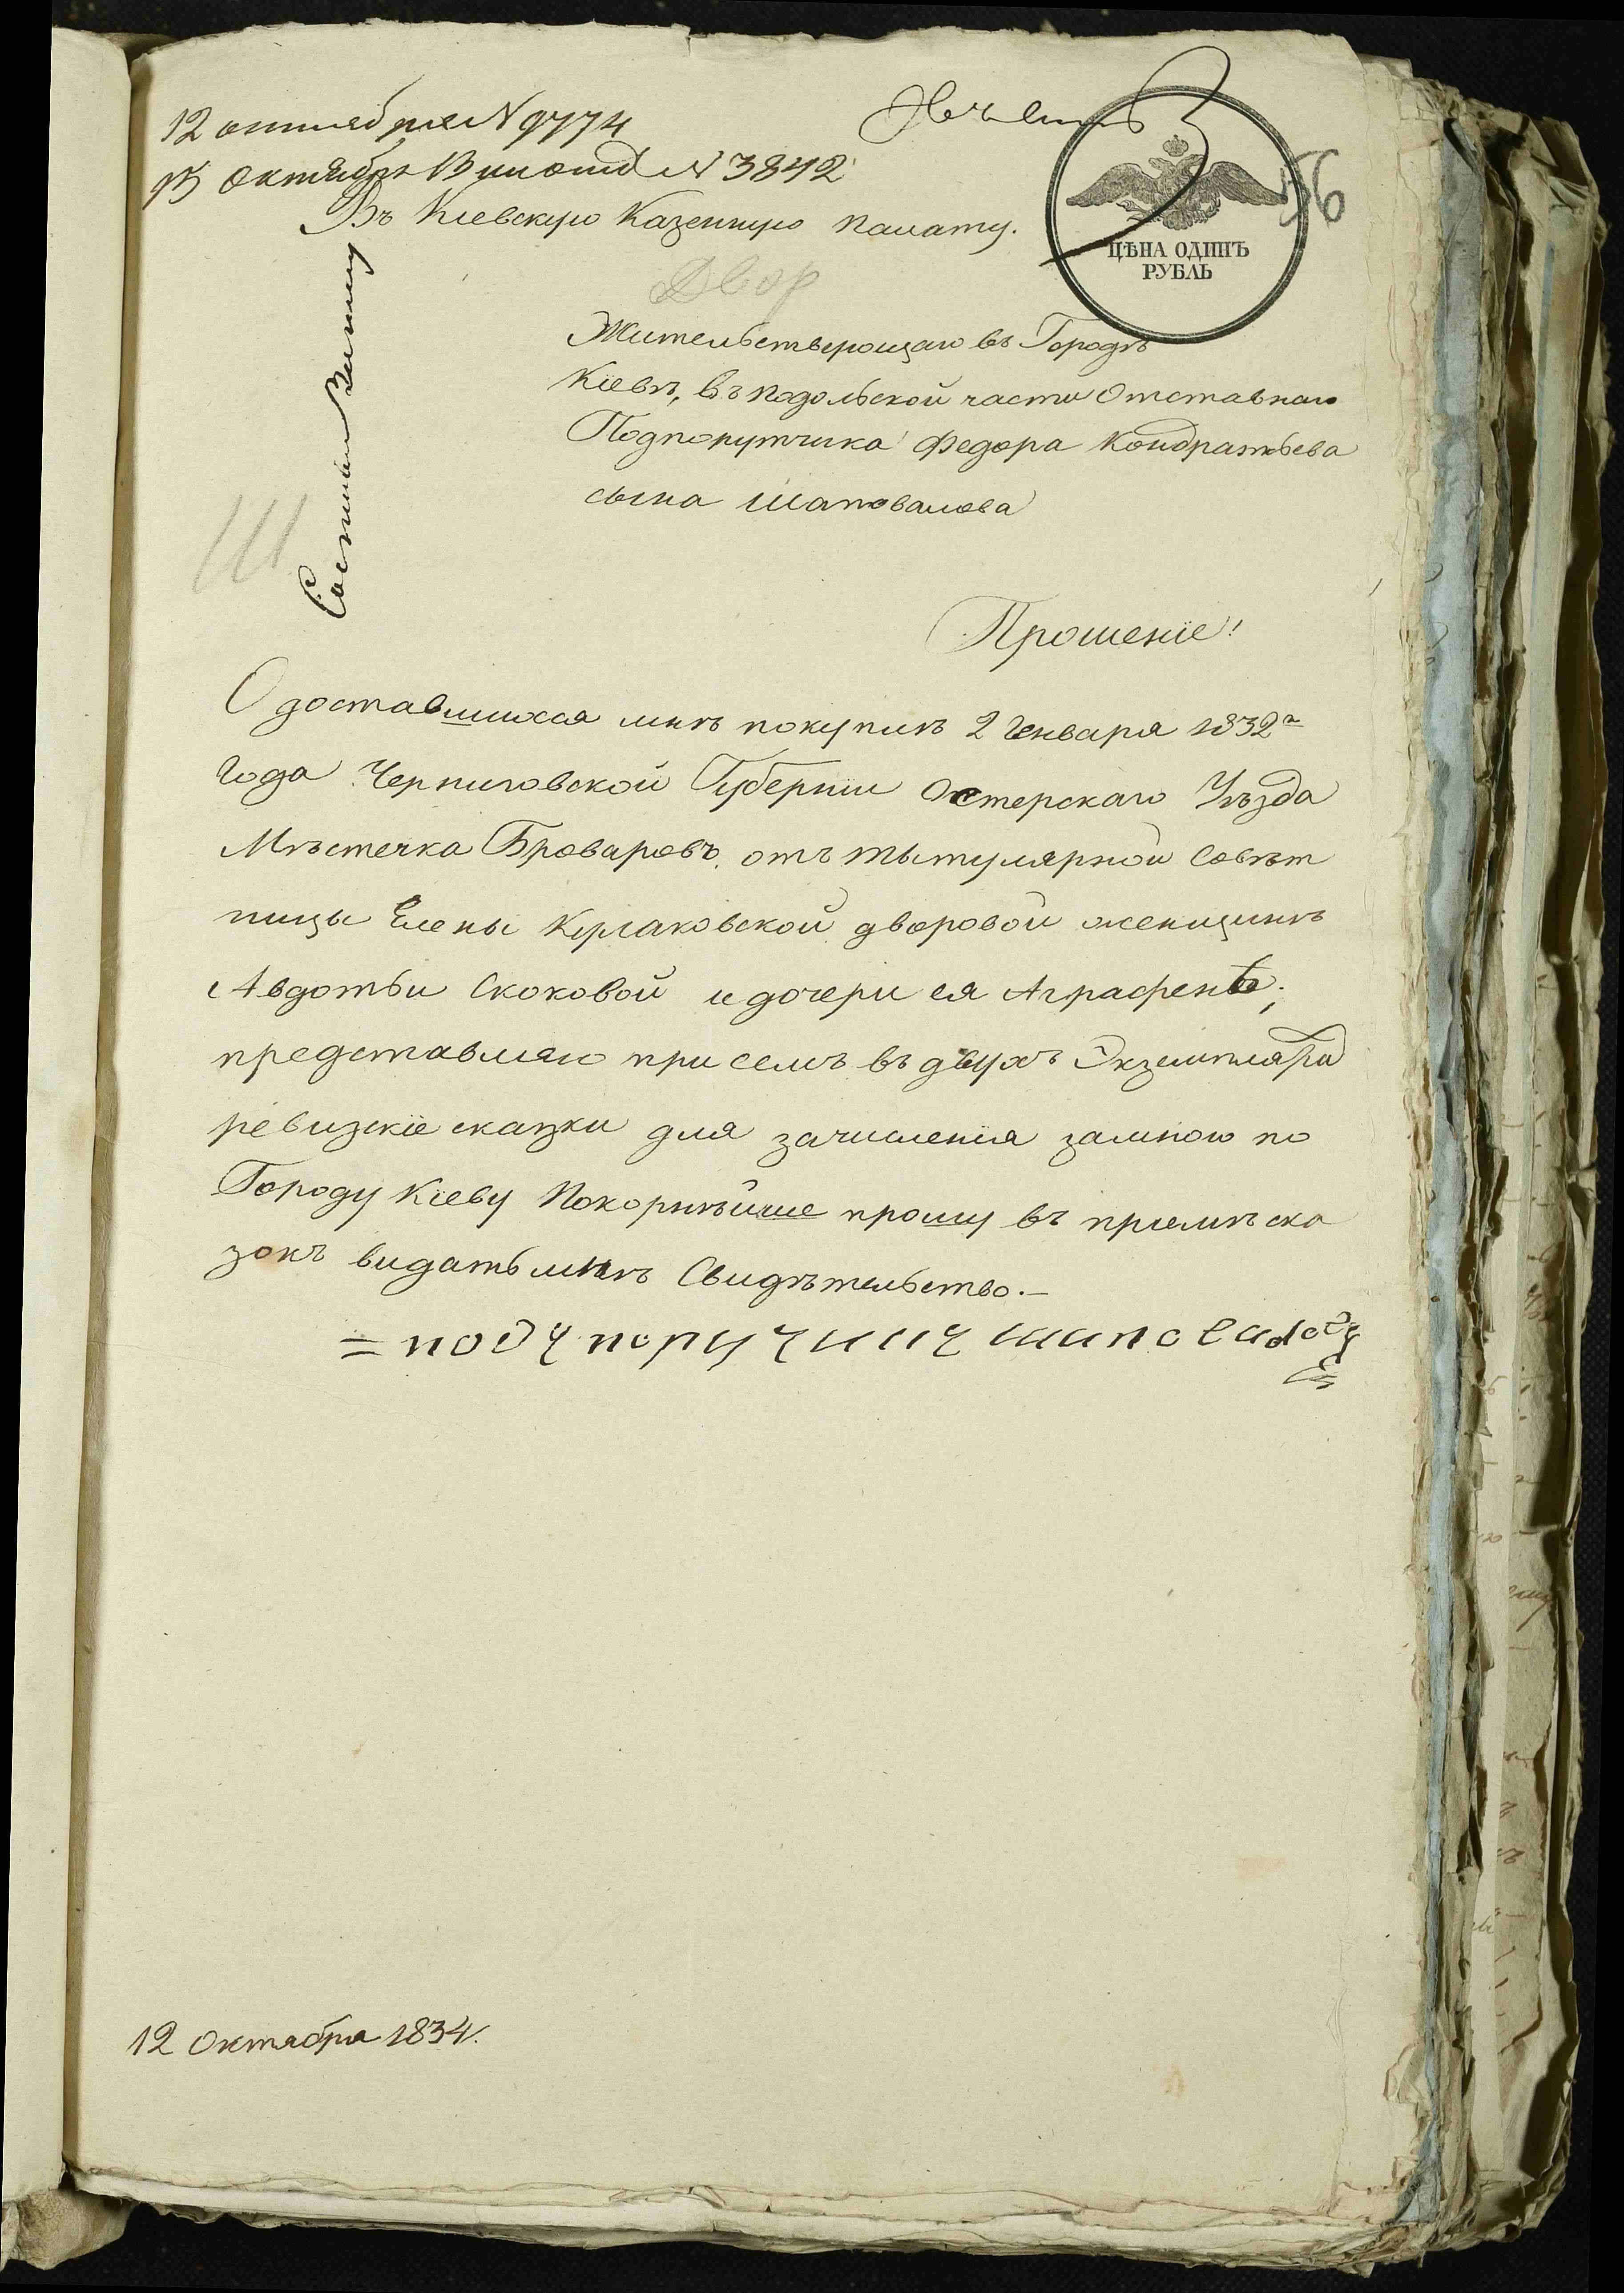 12 октября N 9774
15 Октября В III отд N 3842
56
Въ Кіевскую Казенную палату.
ЦѢНА ОДИНЪ
РУБЛЬ
Двор
Жительствующаго въ Городѣ
Кіевѣ, въ подольской части Отставнаго
Подпорутчика Федора Кондратьева
сына Шаповалова
Ш
Прошеніе!
О доставшихся мнѣ покупкѣ 2 Генваря 1832го
года Черниговской Губерніи Остерскаго Уѣзда
Мѣстечка Броваровъ, отъ тытулярной Совѣт
ницы Елены Кулаковской дворовой женщинѣ
Авдотьи Скоковой и дочери ея Аграфенѣ;
представляю при семъ въ двухъ Экземпляра
ревизскіе сказки для зачисленія замною по
Городу Кіеву Покорнѣйше прошу въ пріемѣ ска
зокъ видать мнѣ Свидѣтельство.—
= подъпоручикъ шаповаловъ
12 Октября 1834.